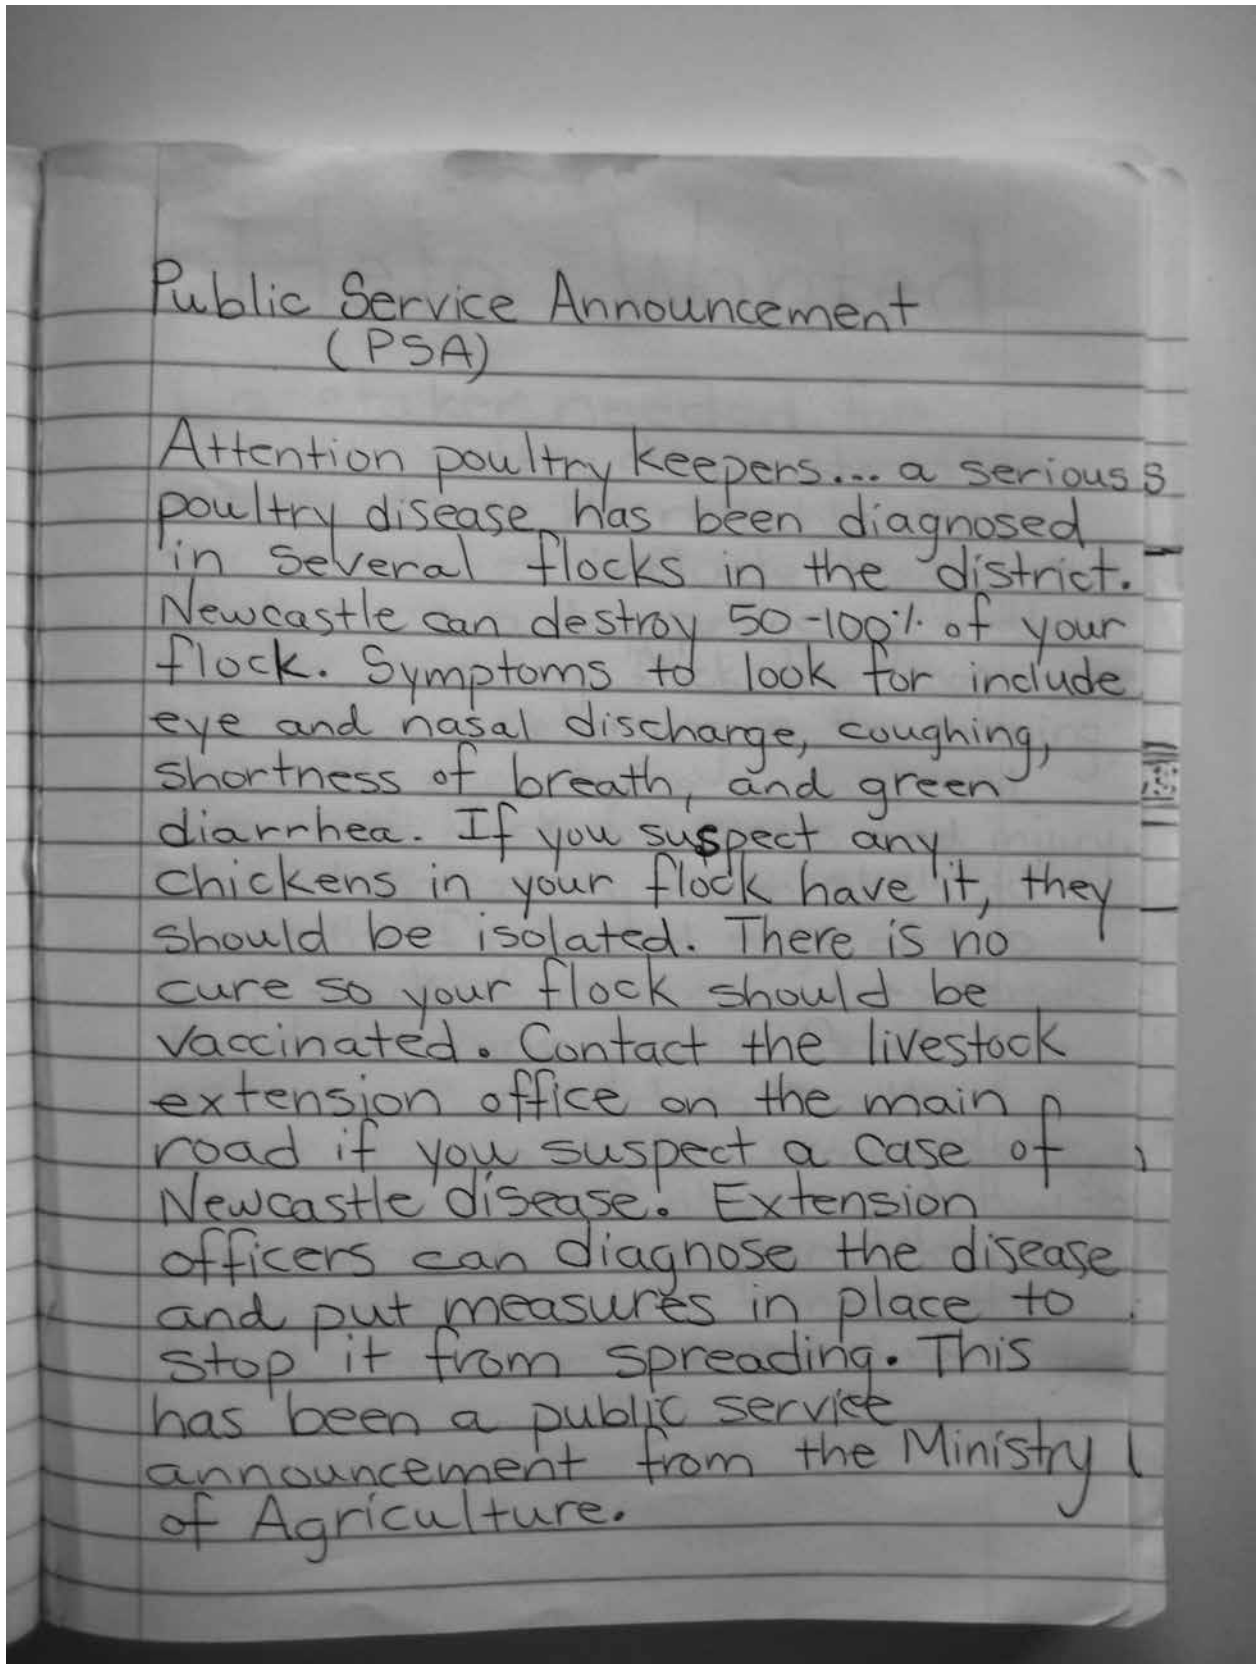 Public Service Announcement
(PSA)
Attention poultry keepers... a serious
poultry disease has been diagnosed
in several flocks in the district.
Newcastle can destroy 50-100% of your
flock. Symptoms to look for include
eye and nasal discharge, coughing,
shortness of breath, and green
diarrhea. If you suspect any
chickens in your flock have it, they
should be isolated. There is no
cure so your flock should be
vaccinated. Contact the livestock
extension office on the main
road if you suspect a case of
Newcastle disease. Extension
officers can diagnose the disease
and put measures in place to
stop it from spreading. This
has been a public service
announcement from the Ministry
of Agriculture.